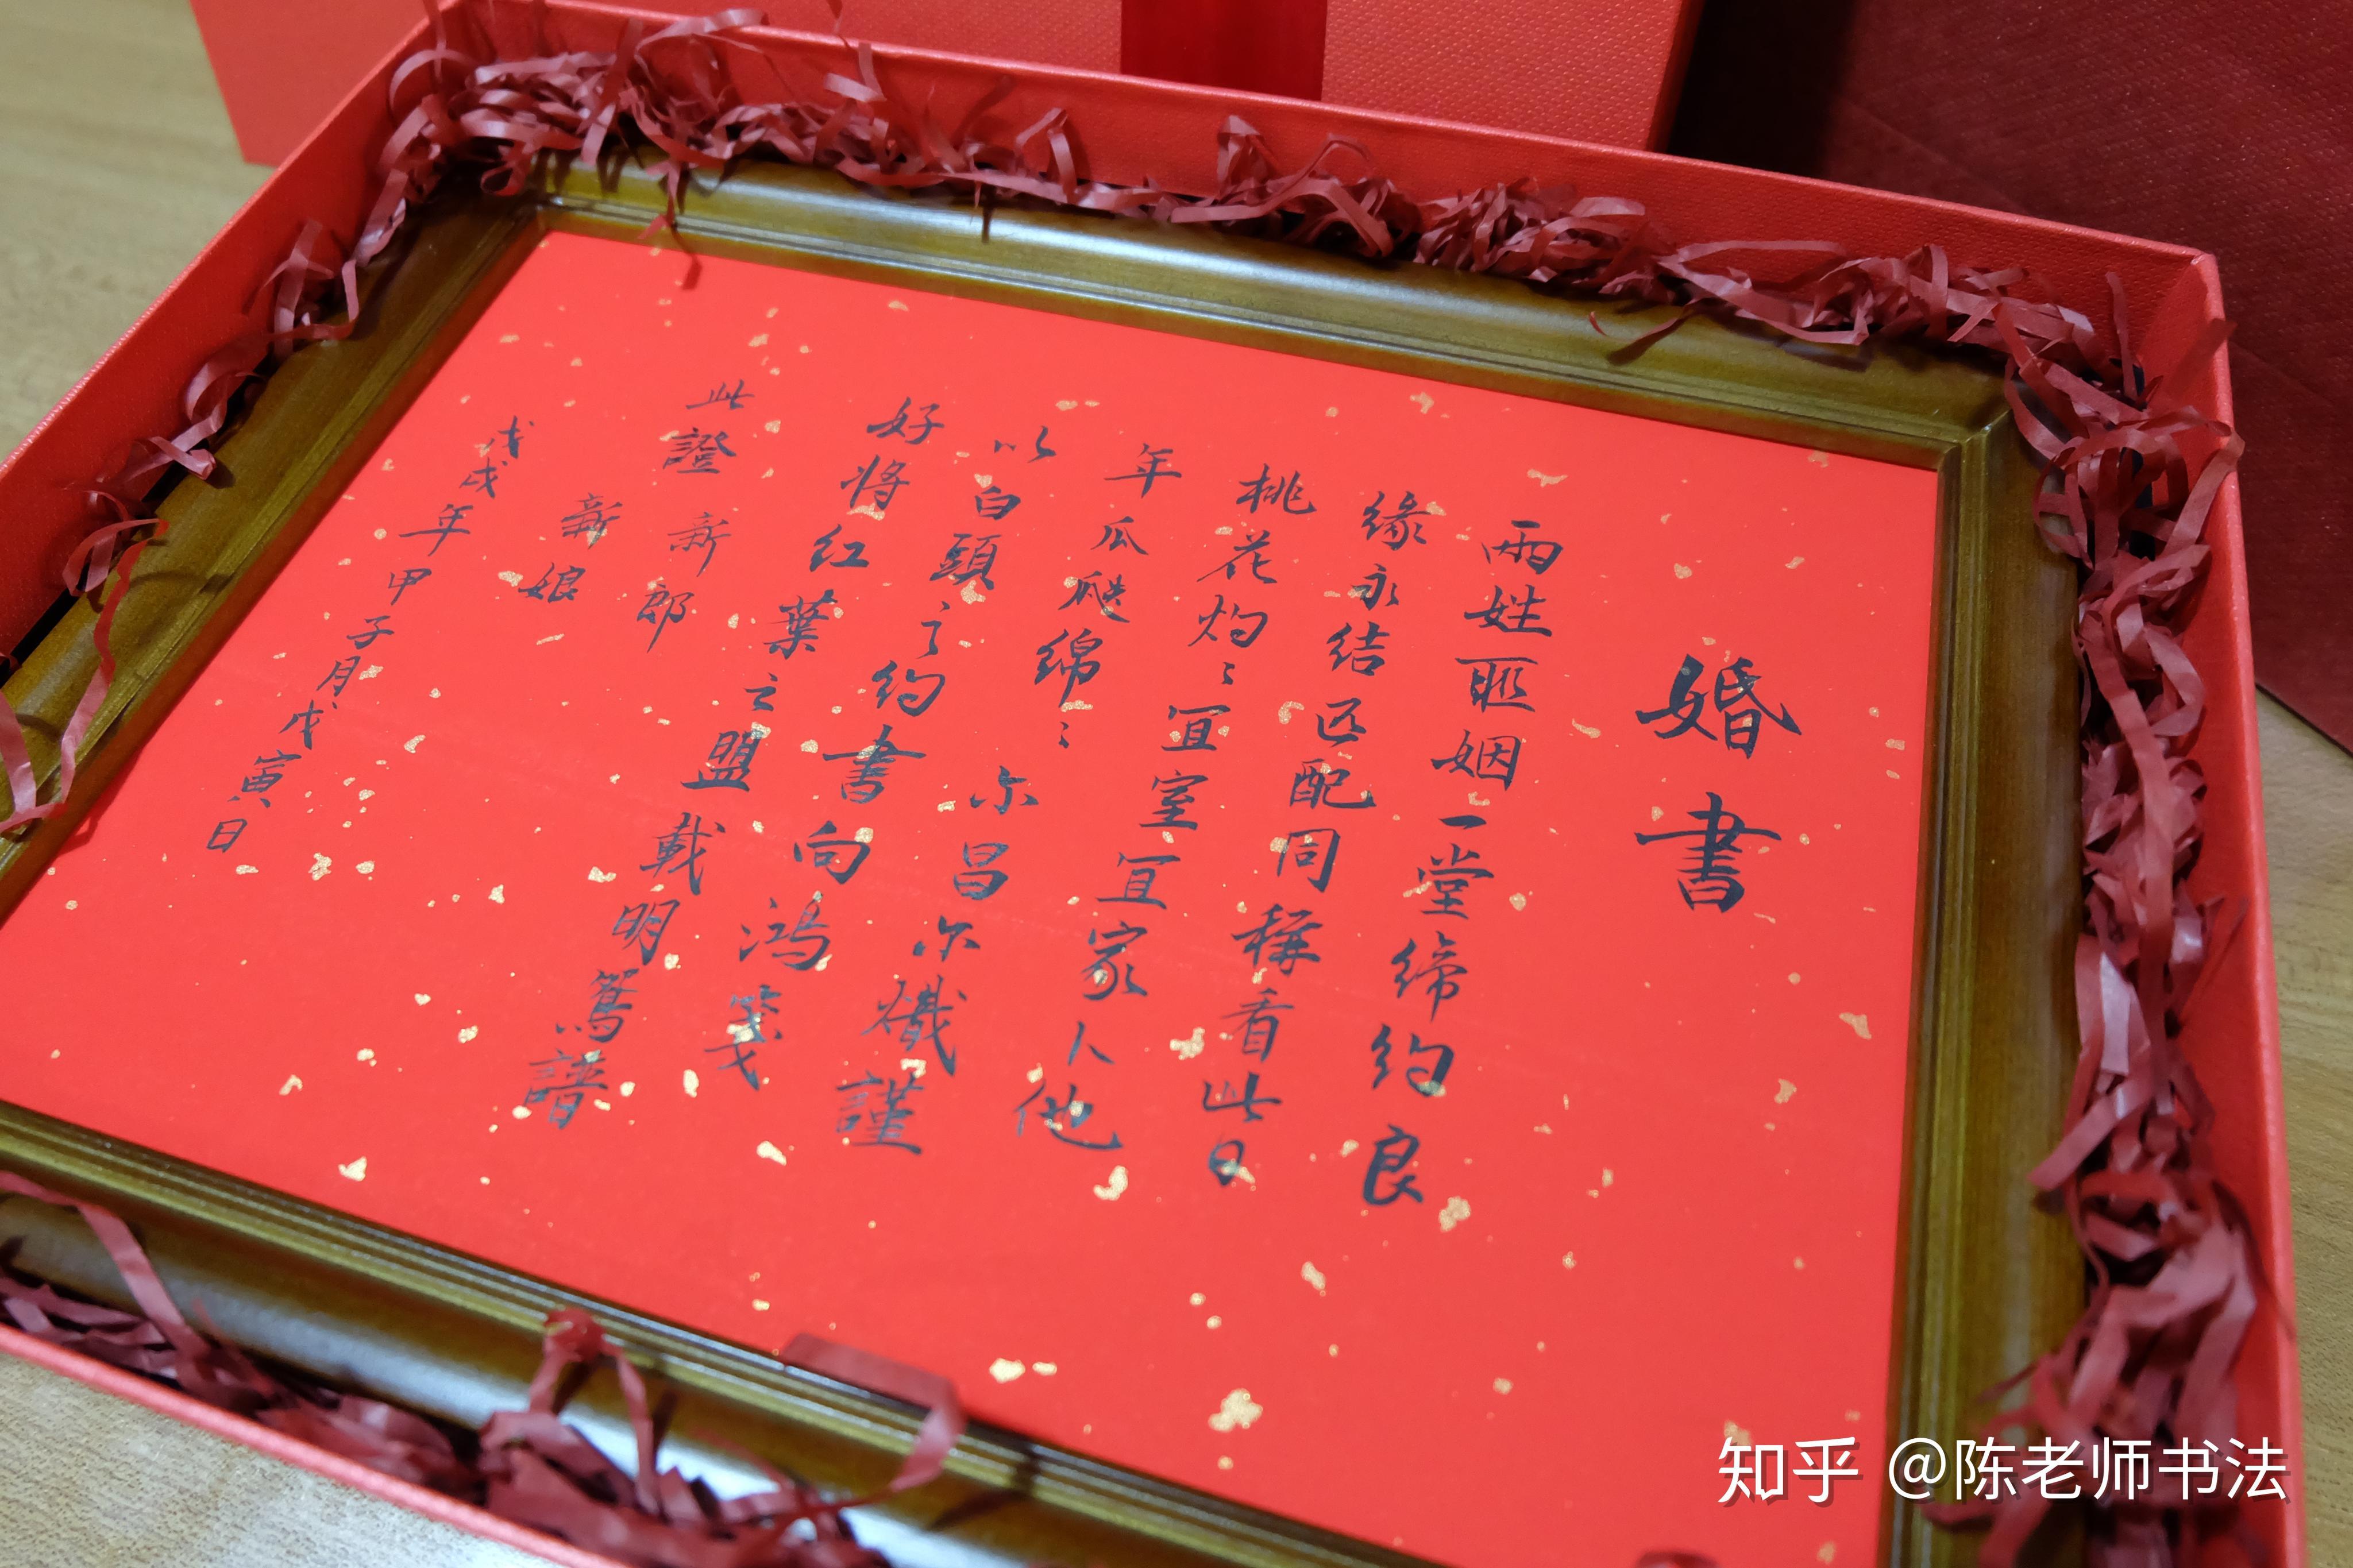 婚書
兩姓聯姻一堂締約良
緣永结匹配同稱看此日
桃花灼〻宜室宜家卜他
年瓜瓞綿〻尔昌尔熾謹
以白頭之約書向鸿箋
好将红葉之盟載明鴛譜
此證 新郎
新娘
戊戌年甲子月戊寅日
知乎 @陈老师书法